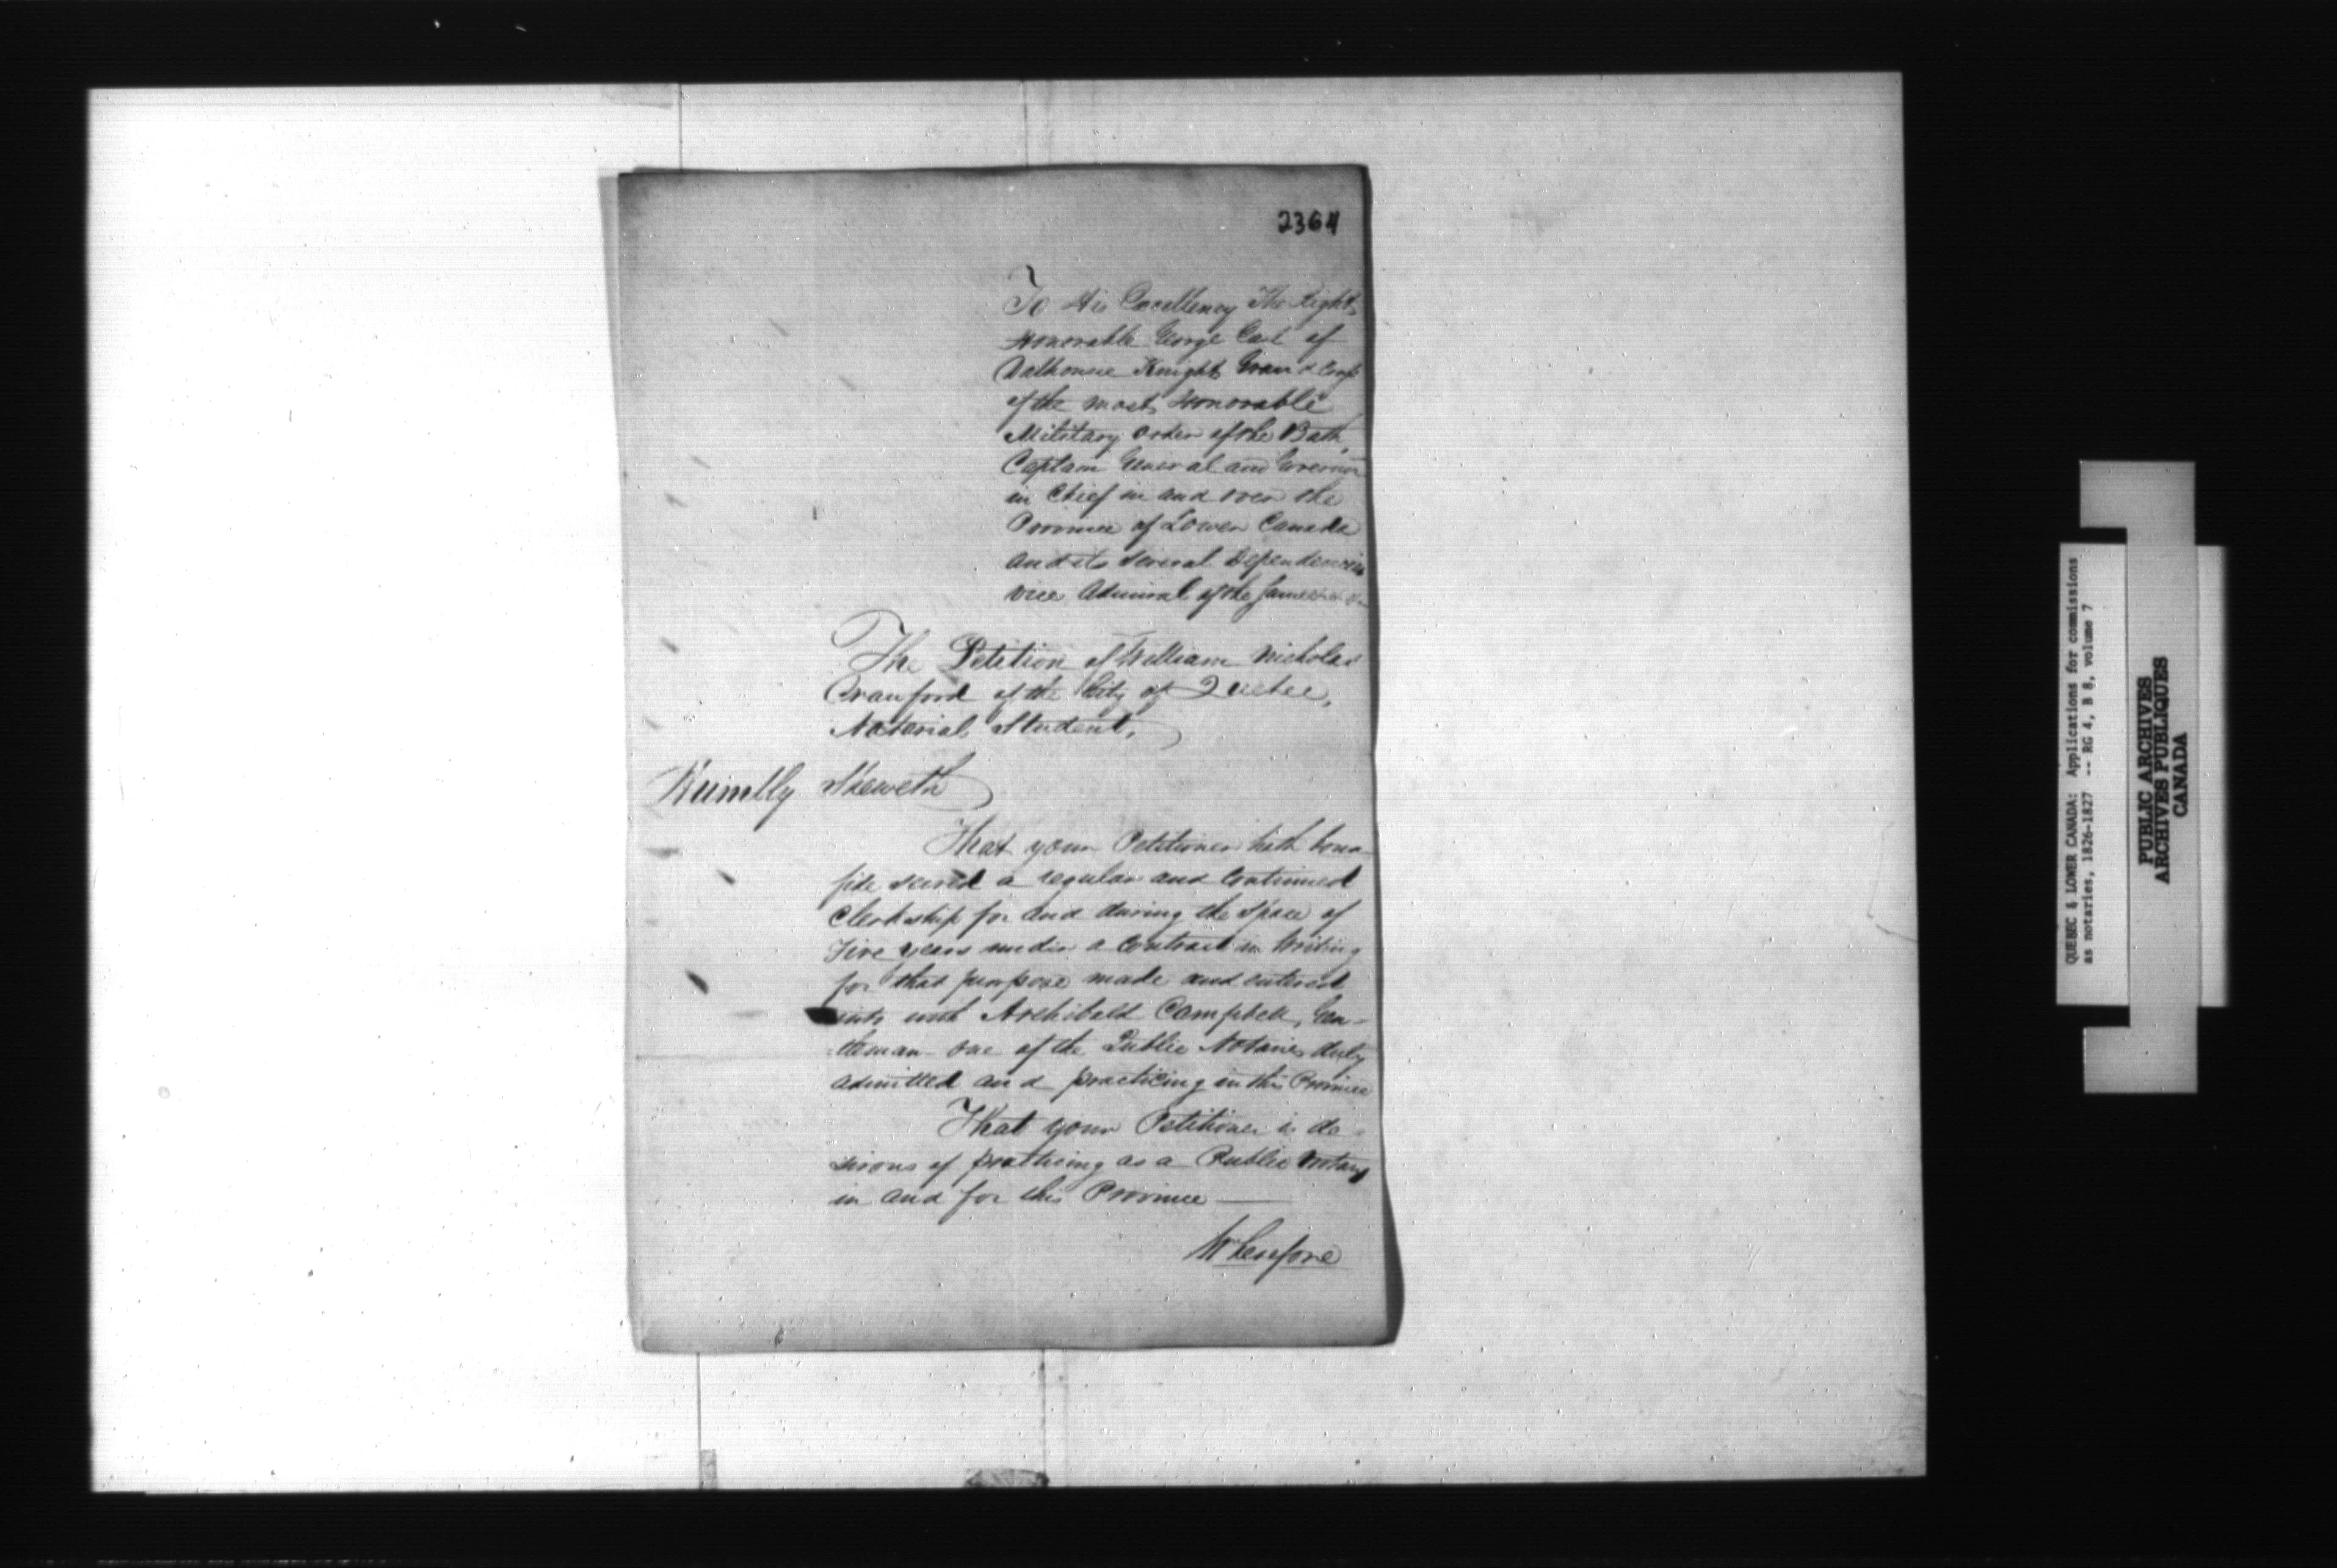 2364
To His Excellency The Right
Honorable George Earl of
Dalhousie Knight Grand Cross
of the most Honorable
Military Order of the Bath,
Captain General and Governor
in Chief in and over the
Province of Lower Canada
and its several Dependencies
Vice Admiral of the same
The Petition of William Nicholas
Crawford of the City of Quebec,
Notarial Student,
Humbly Sheweth
That your Petitioner hath bona
fide served a regular and Continued
Clerkship for and during the space of
Five years under a Contract in Writing
for that purpose made and entered
into with Archibald Campbell, Gen-
tleman one of the Public Notaries duly
admitted and practicing in this Province
That your Petitioner is de-
sirous of practicing as a Public Notary
in and for this Province —
Wherefore
QUEBEC & LOWER CANADA: Applications for commissions
as notaries, 1826-1827 -- RG 4, B 8, volume 7
PUBLIC ARCHIVES
ARCHIVES PUBLIQUES
CANADA